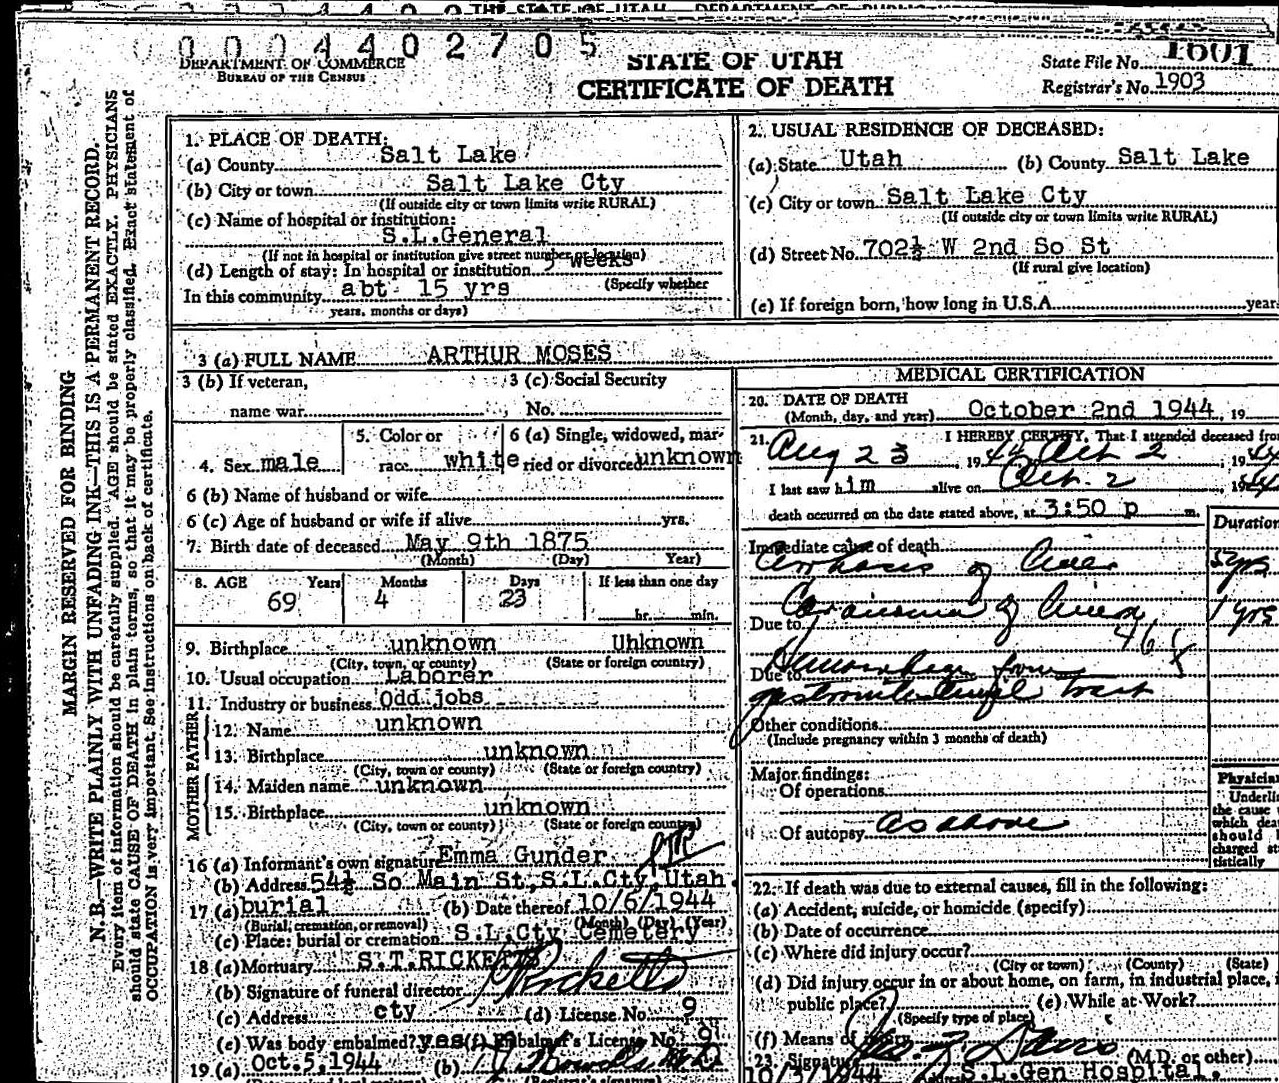 THE STATE OF UTAH — DEPARTMENT OF
0004402705
DEPARTMENT OF COMMERCE
BUREAU OF THE CENSUS
STATE OF UTAH
CERTIFICATE OF DEATH
State File No. 1601
Registrar's No. 1903
MARGIN RESERVED FOR BINDING
N. B.—WRITE PLAINLY WITH UNFADING INK—THIS IS A PERMANENT RECORD.
Every item of information should be carefully supplied. AGE should be stated EXACTLY. PHYSICIANS
should state CAUSE OF DEATH in plain terms, so that it may be properly classified. Exact statement of
OCCUPATION is very important. See instructions on back of certificate.
1. PLACE OF DEATH:
(a) County Salt Lake
(b) City or town Salt Lake Cty
(If outside city or town limits write RURAL)
(c) Name of hospital or institution:
S.L.General
(If not in hospital or institution give street number or location)
(d) Length of stay: In hospital or institution weeks
(Specify whether
In this community abt 15 yrs
years, months or days)
2. USUAL RESIDENCE OF DECEASED:
(a) State Utah (b) County Salt Lake
(c) City or town Salt Lake Cty
(If outside city or town limits write RURAL)
(d) Street No. 702½ W 2nd So St
(If rural give location)
(e) If foreign born, how long in U.S.A. year
3 (a) FULL NAME ARTHUR MOSES
3 (b) If veteran, name war
3 (c) Social Security No.
4. Sex male
5. Color or race white
6 (a) Single, widowed, married or divorced unknown
6 (b) Name of husband or wife
6 (c) Age of husband or wife if alive yrs.
7. Birth date of deceased May 9th 1875
(Month) (Day) Year)
8. AGE Years Months Days If less than one day
69 4 23 hr. min.
9. Birthplace unknown Uhknown
(City, town, or county) (State or foreign country)
10. Usual occupation Laborer
11. Industry or business Odd jobs
FATHER
12. Name unknown
13. Birthplace unknown
(City, town or county) (State or foreign country)
MOTHER
14. Maiden name unknown
15. Birthplace unknown
(City, town or county) (State or foreign country)
16 (a) Informant's own signature Emma Gunder
(b) Address 54½ So Main St, S.L.Cty, Utah.
17 (a) burial (b) Date thereof 10/6/1944
(Burial, cremation, or removal) (Month) (Day) (Year)
(c) Place: burial or cremation S.L.Cty Cemetery
18 (a) Mortuary S.T.RICKETTS
(b) Signature of funeral director Ricketts
(c) Address cty (d) License No. 9
(e) Was body embalmed? yes (f) Embalmer's License No. 9
19 (a) Oct.5,1944 (b)
MEDICAL CERTIFICATION
20. DATE OF DEATH
(Month, day, and year) October 2nd 1944, 19
21. I HEREBY CERTIFY, That I attended deceased from
Aug 23, 1944 Oct. 2, 1944
I last saw him alive on Oct. 2, 1944
death occurred on the date stated above, at 3:50 p m.
Duration
Immediate cause of death
Cirrhosis of Liver 5 yrs
Due to Carcinoma of Liver 1 yrs
46
Due to Hemorrhage from
gastrointestinal tract
Other conditions
(Include pregnancy within 3 months of death)
Major findings:
Of operations
Of autopsy as above
Physician
Underli
the cause
which dea
should
charged st
tistically
22. If death was due to external causes, fill in the following:
(a) Accident, suicide, or homicide (specify)
(b) Date of occurrence
(c) Where did injury occur?
(City or town) (County) (State)
(d) Did injury occur in or about home, on farm, in industrial place, i
public place? (e) While at Work?
(Specify type of place)
(f) Means of injury
23. Signature Davis (M.D. or other)
10/3/1944 Address S.L.Gen Hospital.